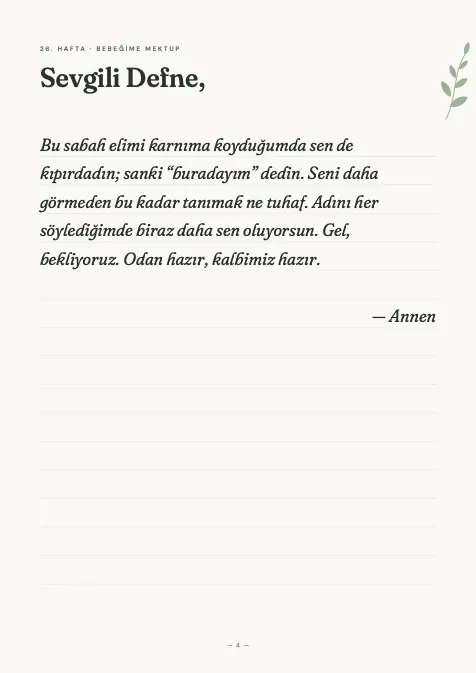 26. HAFTA · BEBEĞİME MEKTUP
Sevgili Defne,
Bu sabah elimi karnıma koyduğumda sen de
kıpırdadın; sanki “buradayım” dedin. Seni daha
görmeden bu kadar tanımak ne tuhaf. Adını her
söylediğimde biraz daha sen oluyorsun. Gel,
bekliyoruz. Odan hazır, kalbimiz hazır.
— Annen
— 4 —